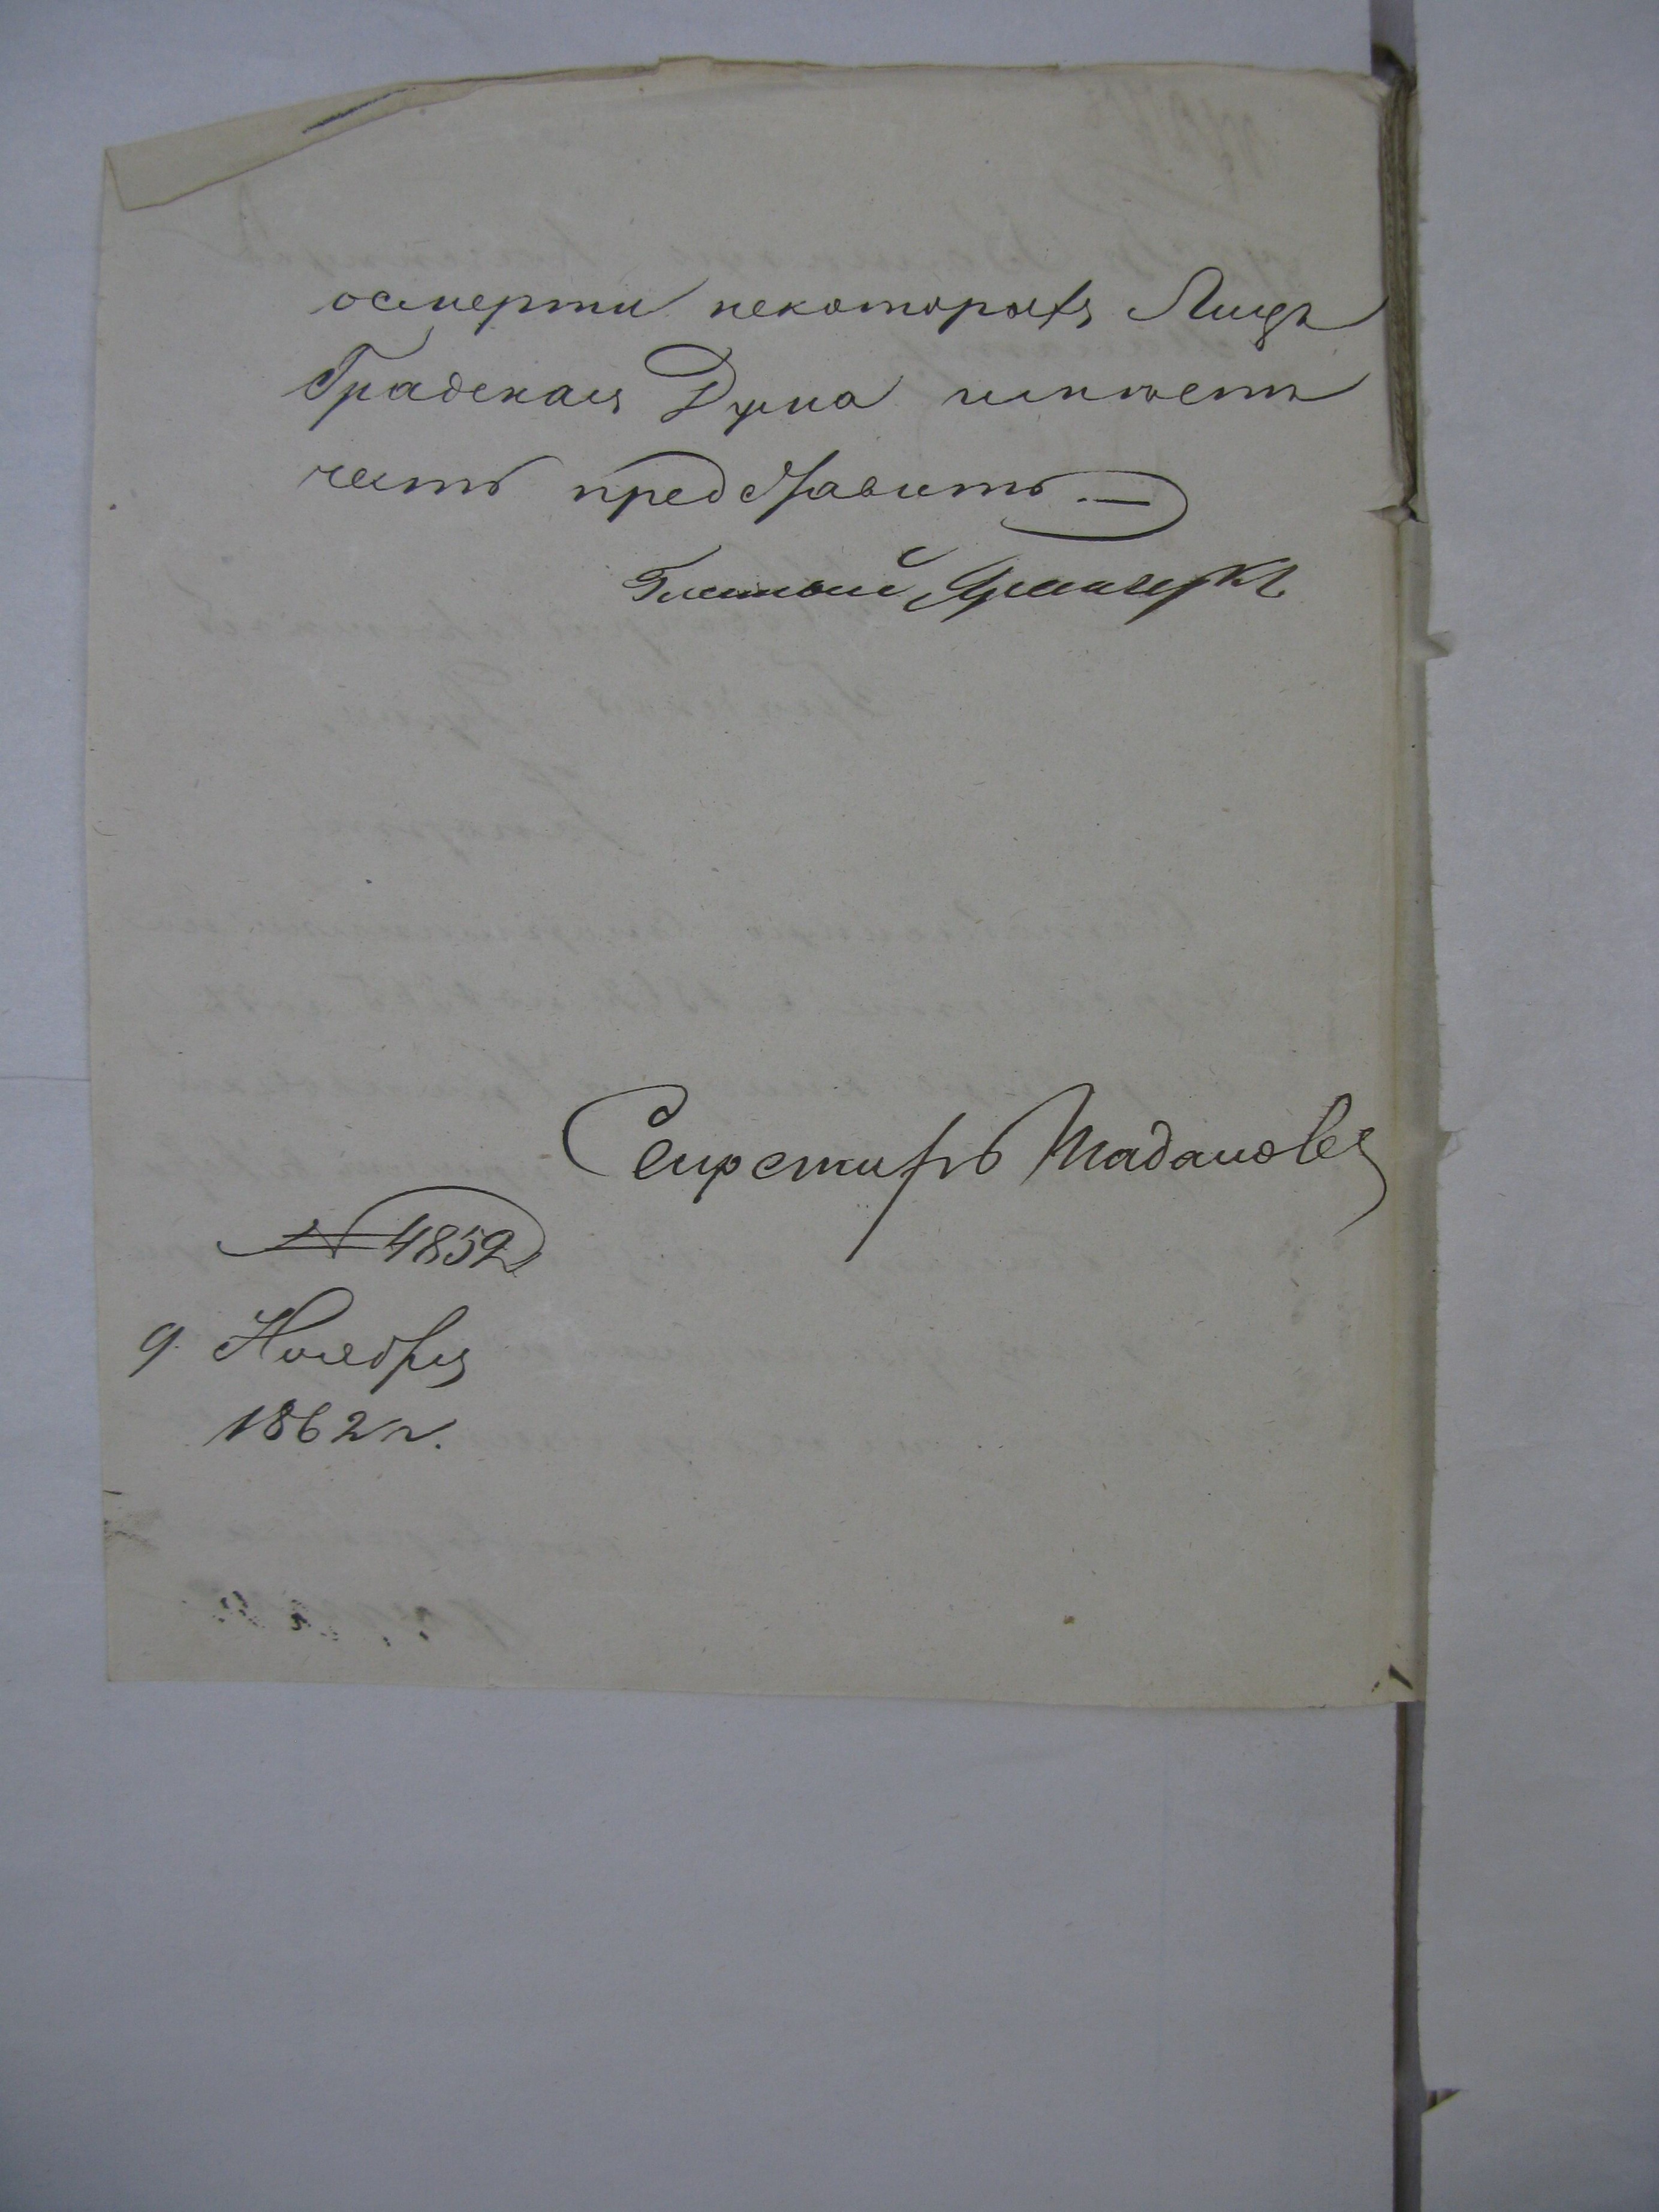 осмерти некоторыхъ Лицъ
Градская Дума имѣетъ
честь представить. —
Гласный
Секретарь Шадановъ
№ 4852
9 Ноября
1862 г.